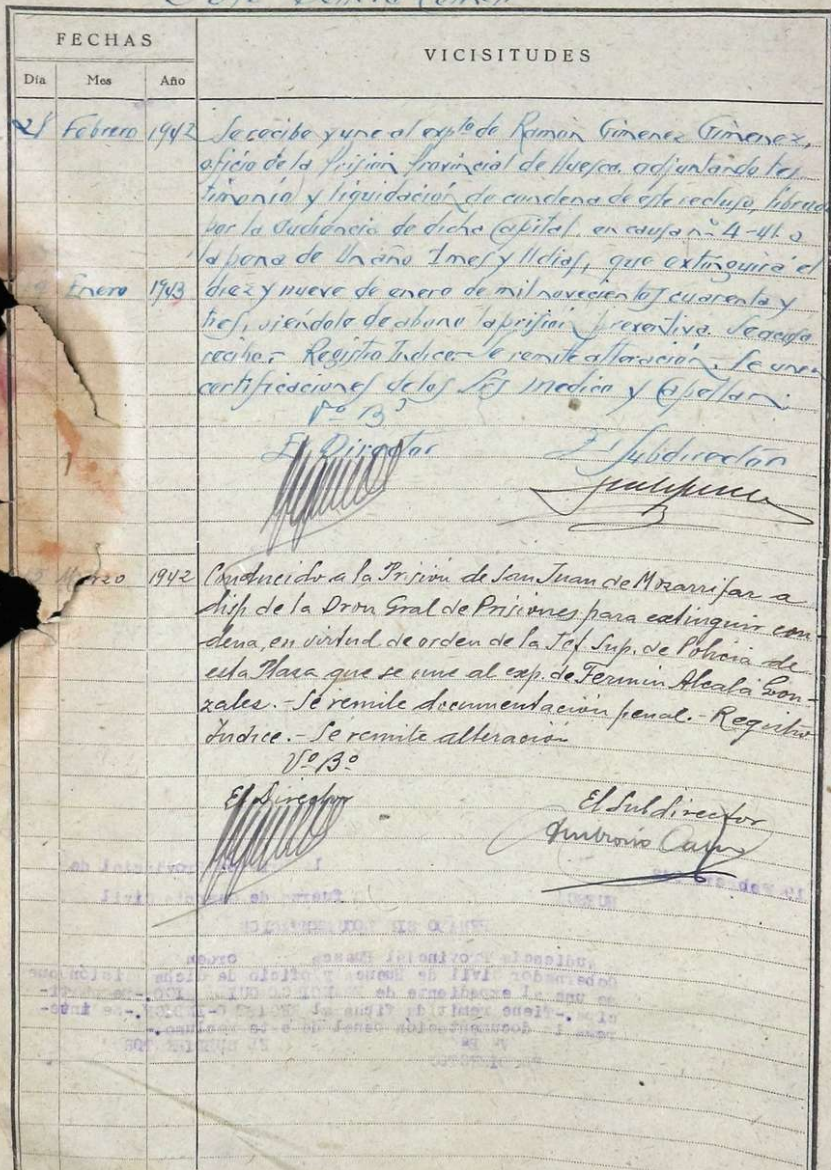 FECHAS
VICISITUDES
Día Mes Año
Febrero 1942 Se recibe y une al expto de Ramon Gimenez Gimenez,
oficio de la Prisión Provincial de Huesca, adjuntando tes
timonio y liquidación de condena de este recluso, librado
por la Audiencia de dicha Capital, en causa nº 4-41 a
la pena de Un año 1 mes y 11 dias, que extinguirá el
Enero 1943 diez y nueve de enero de mil novecientos cuarenta y
tres, siéndole de abono la prisión preventiva. Se acusa
recibo. Registro Indice. Se remite alteración. Se unen
certificaciones de los Sres Medico y Capellan.
Vº Bº
El Director El Subdirector
Marzo 1942 Conducido a la Prisión de San Juan de Mozarrifar a
disp. de la Dron Gral de Prisiones para extinguir con-
dena, en virtud de orden de la Jef. Sup. de Policia de
esta Plaza que se une al exp. de Fermin Alcalá Gon-
zales. - Se remite documentación penal. - Registro
Indice. - Se remite alteración
Vº Bº
El Director El Subdirector
Ambrosio
Febrero
Provincial de
HUESCA
Audiencia Provincial Huesca orden
Gobernador Civil de Huesca y oficio de dicha que
se une al expediente de
documentación penal de este recluso.-
Vº Bº